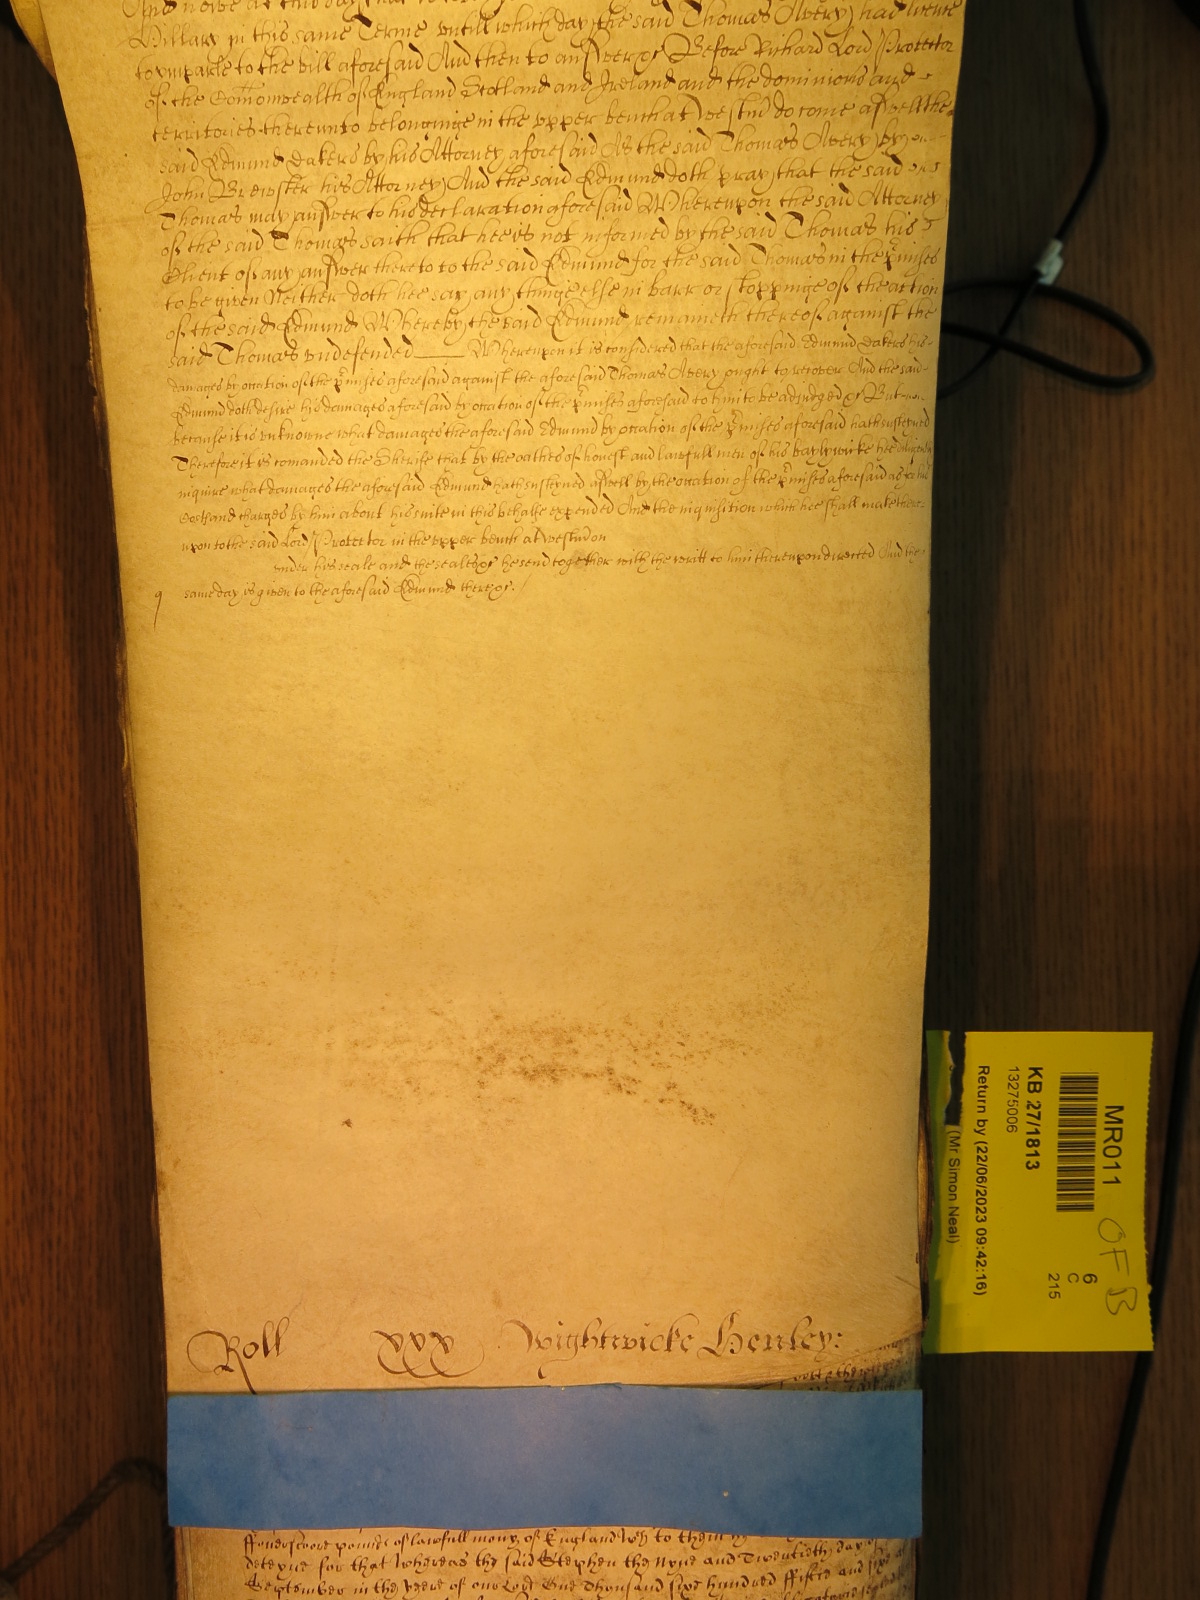 And nowe at this day that is
Hillary in this same Terme untill which day the said Thomas Avery had leave
to imparle to the bill aforesaid And then to answer &c Before Richard Lord Protector
of the Comonwealth of England Scotland and Ireland and the dominions and
territories thereunto belonginge in the upper bench at Westm̃ do come aswell the
said Edmund Dakers by his Attorney aforesaid As the said Thomas Avery by
John Brewster his Attorney And the said Edmund doth pray that the said
Thomas may answer to his declaration aforesaid Whereupon the said Attorney
of the said Thomas saith that hee is not informed by the said Thomas his
Client of any answer thereto to the said Edmund for the said Thomas in the p̃mises
to be given Neither doth hee say any thinge else in barr or stoppinge of the action
of the said Edmund Whereby the said Edmund remaineth thereof against the
said Thomas undefended Whereupon it is considered that the aforesaid Edmund Dakers his
damages by occation of the p̃mises aforesaid against the aforesaid Thomas Avery ought to recover And the said
Edmund doth desire his damages aforesaid by occation of the p̃mises aforesaid to him to be adjudged &c But
because it is unknowne what damages the aforesaid Edmund by occation of the p̃mises aforesaid hath susteyned
Therefore it is comanded the Sherife that by the oathes of honest and lawfull men of his baylywicke hee diligently
inquire what damages the aforesaid Edmund hath susteyned aswell by the occation of the p̃mises aforesaid as for his
Costs and charges by him about his suite in this behalfe expended And the inquisition which hee shall make there
upon to the said Lord Protector in the upper bench at Westm̃ on
under his seale and the seales &c he send together with the writt to him thereupon directed And the
same day is given to the aforesaid Edmund there &c
Roll xxx Wightwicke Henley:
ffouerscore pounds of lawfull mony of England wch to them
deteyne for that whereas the said Stephen the nyne and Twentieth day of
September in the yeere of our Lord One Thousand six hundred ffiftie and
MR011
KB 27/1813
13275006
Return by (22/06/2023 09:42:16)
(Mr Simon Neal)
6
C
215
OF B